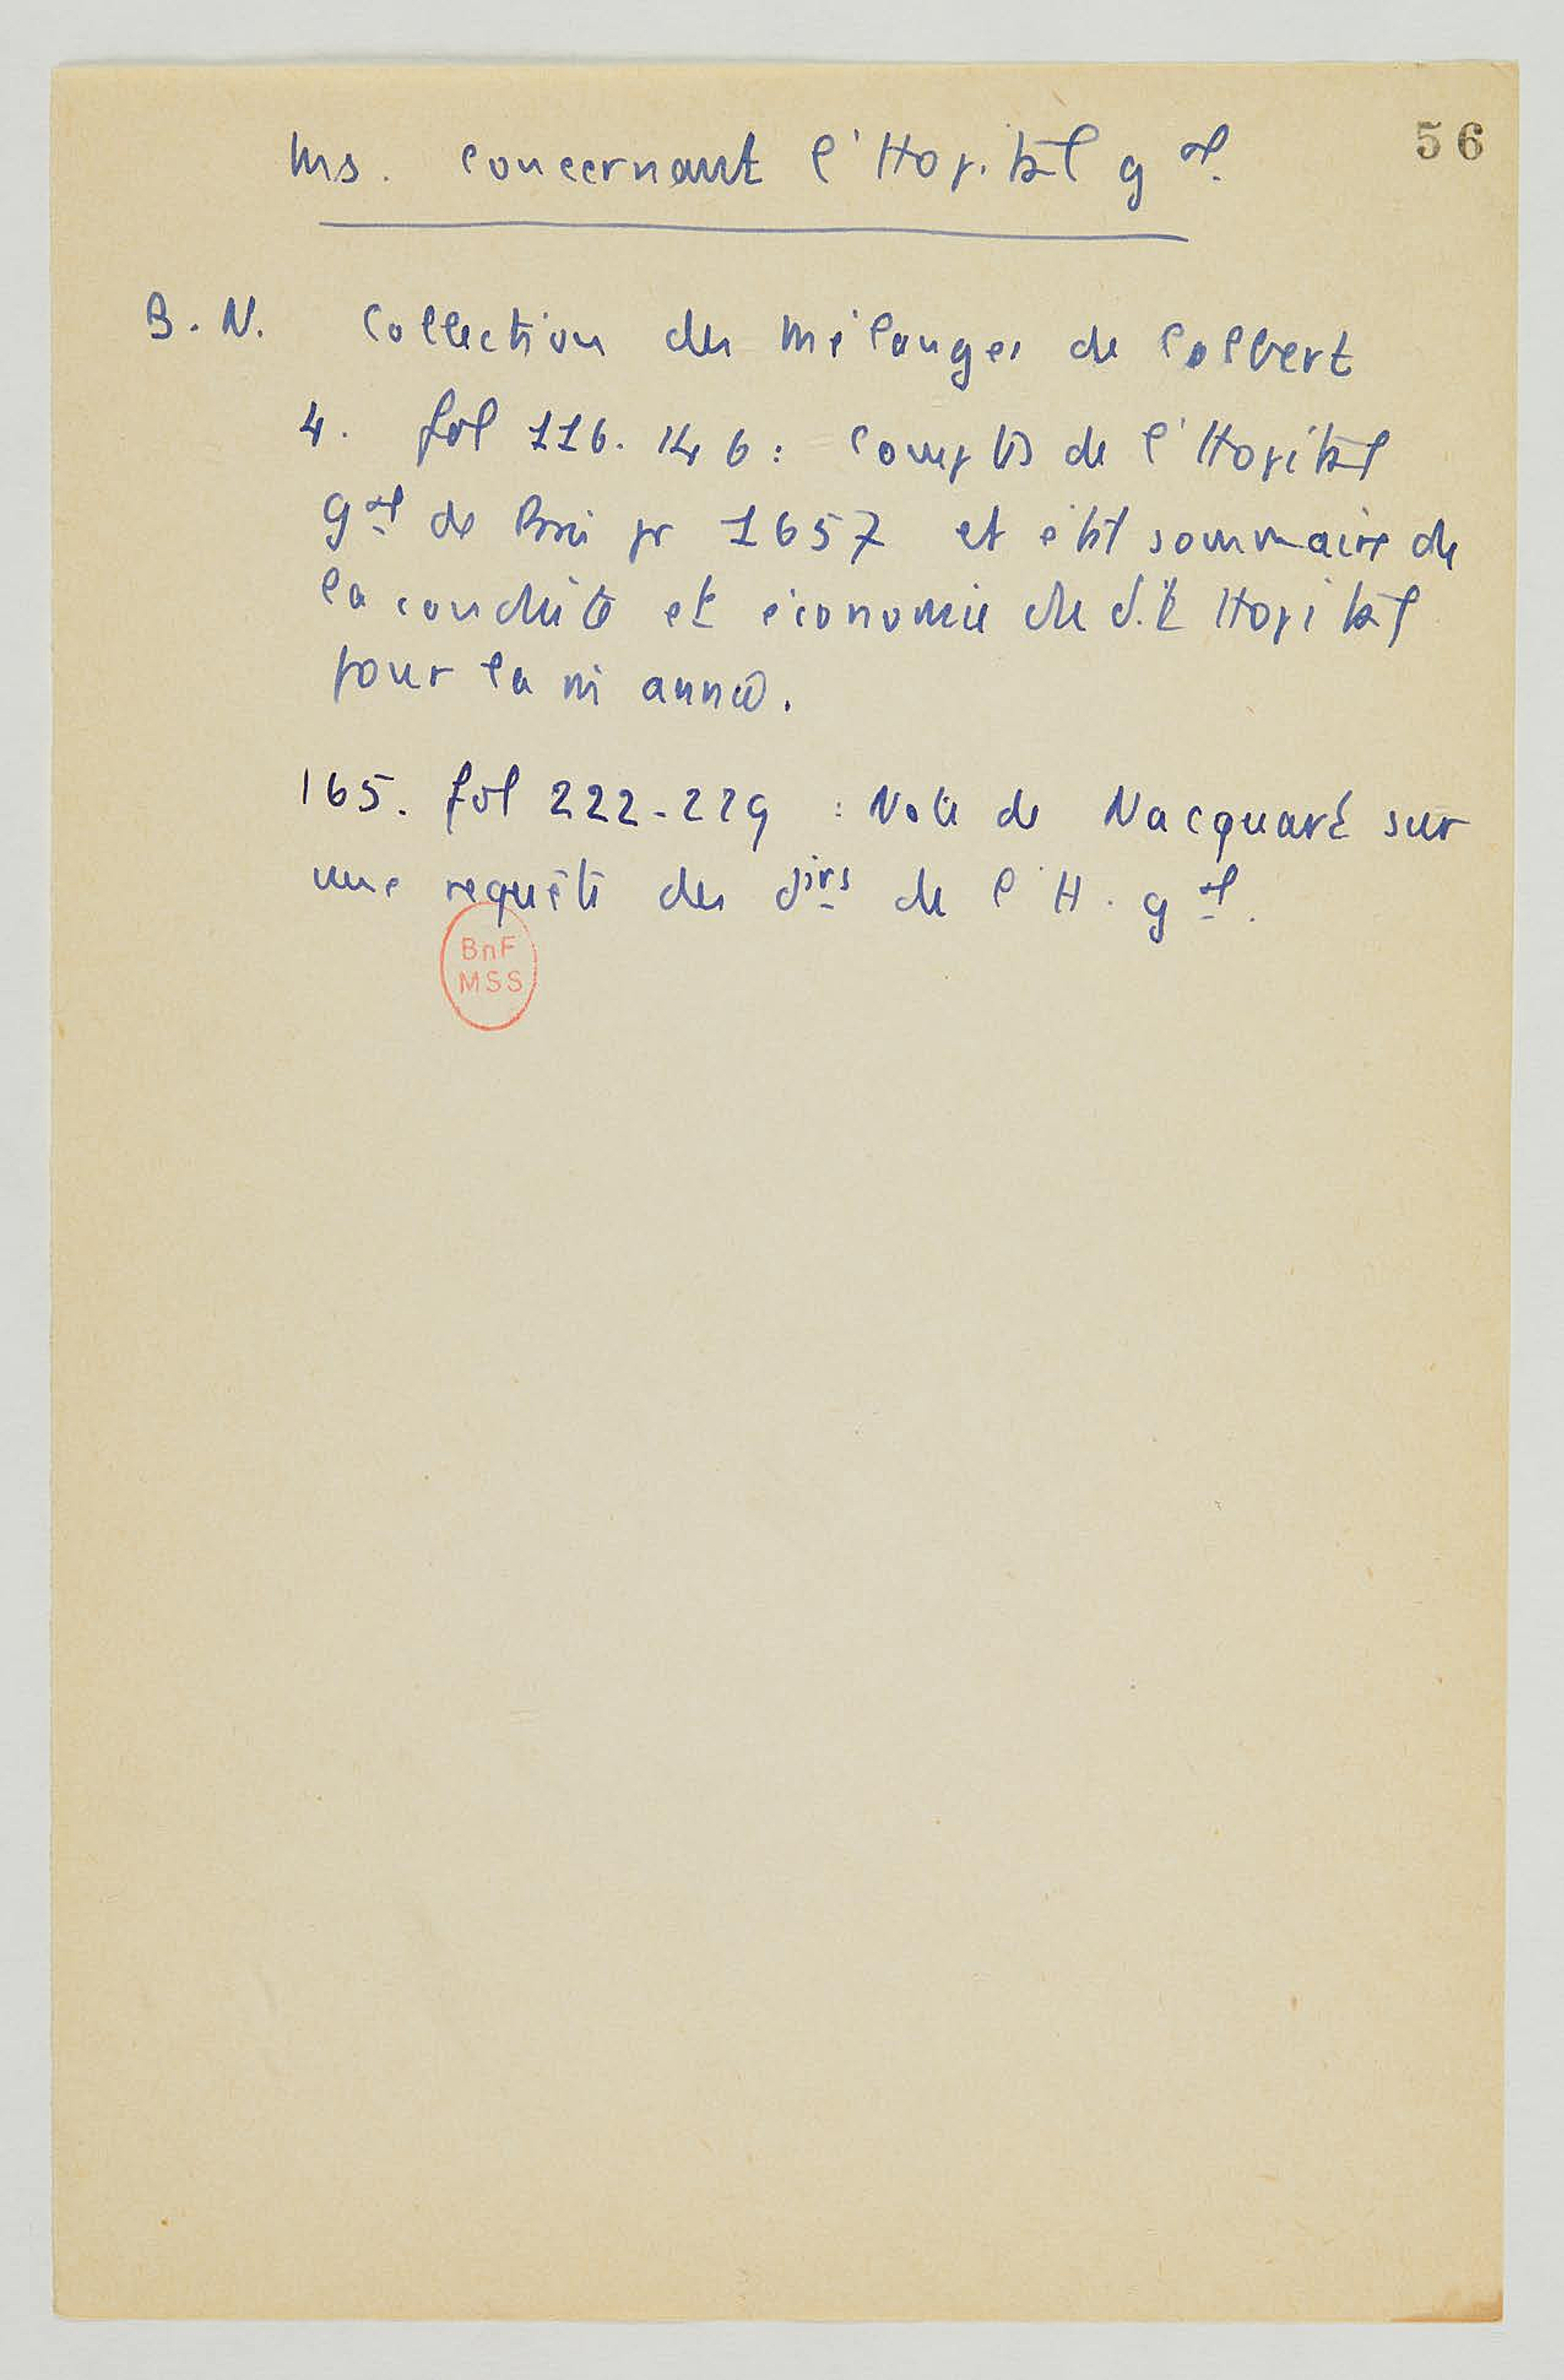 56
Ms. concernant l'Hopital gal.
B.N. Collection des Mélanges de Colbert
4. fol 116-146 : Comptes de l'Hopital
gal de Paris pr 1657 et état sommaire de
la conduite et économie du d.t Hopital
pour la m année.
165. fol 222-229 : Note de Nacquart sur
une requête des dirs de l'H. gal.
BnF
MSS